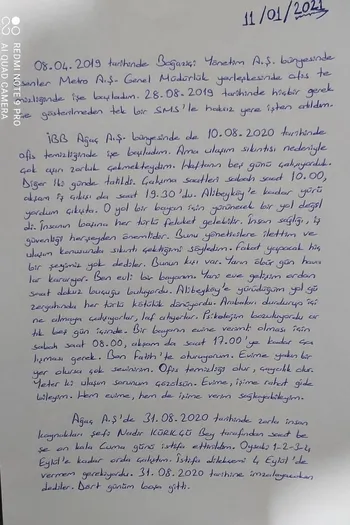 11/01/2021
08.04.2019 tarihinde Boğaziçi Yönetim A.Ş. bünyesinde
Metro A.Ş. Genel Müdürlük yerleşkesinde ofis te
mizliğinde işe başladım. 28.08.2019 tarihinde hiçbir gerek
çe gösterilmeden tek bir SMS'le haksız yere işten atıldım.
İBB Ağaç A.Ş. bünyesinde de 10.08.2020 tarihinde
ofis temizliğinde işe başladım. Ama ulaşım sıkıntısı nedeniyle
çok aşırı zorluk çekmekteydim. Haftanın beş günü çalışıyorduk.
Diğer iki günde tatildi. Çalışma saatleri sabah saat 10.00,
akşam iş çıkışı da saat 19.30'du. Alibeyköy'e kadar yürü
yordum çıkışta. O yol bir bayan için yürünecek bir yol değil
di. İnsanın başına her türlü felaket gelebilir. İnsan sağlığı, iş
güvenliği herşeyden önemlidir. Bunu yöneticilere ilettim ve
ulaşım konusunda sıkıntı çektiğimi söyledim. Fakat yapacak hiç
bir şeyimiz yok dediler. Bunun kışı var. Yarın öbür gün hava
lar kararıyor. Ben evli bir bayanım. Yani eve gelişim ardan
saat dokuz buçuğu buluyordu. Alibeyköy'e yürüdüğüm yol gü
zergahında her türlü kötülük dönüyordu. Arabaları durdurup içi
ne almaya çalışıyorlar, laf atıyorlar. Psikolojim bozuluyordu ar
tık beş gün içinde. Bir bayanın evine verimli olması için
sabah saat 08.00, akşam da saat 17.00'ye kadar ça
lışması gerek. Ben Fatih'te oturuyorum. Evime yakın bir
yer olursa çok sevinirim. Ofis temizliği olur, çaycılık olur.
Yeter ki ulaşım sorunum çözülsün. Evime, işime rahat gide
bileyim. Hem evime, hem de işime verim sağlayabileyim.
Ağaç A.Ş'de 31.08.2020 tarihinde zorla insan
kaynakları şefi Nadir Bey tarafından saat be
şe on kala Cuma günü istifa ettirildim. Oysaki 1-2-3-4
Eylül'e kadar orda çalıştım. İstifa dilekçemi 4 Eylül'de
vermem gerekiyordu. 31.08.2020 tarihine imzalayacaksın
dediler. Dört günüm boşa gitti.
REDMI NOTE 8 PRO
AI QUAD CAMERA